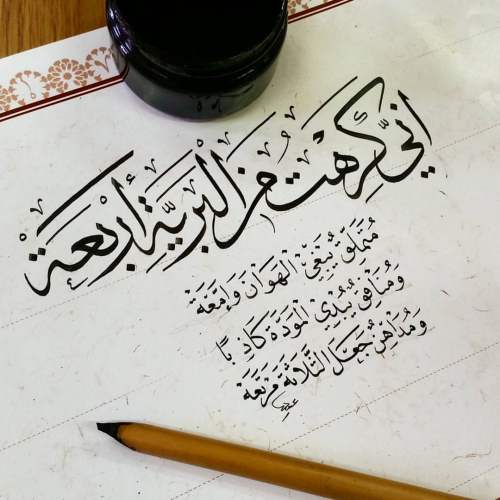 إنّي كَرِهْتُ مِنَ الْبَرِيَّةِ أَرْبَعَة
مُتَمَلِّقٌ يُبْغِي الْهَوَانَ وَإمَّعَة
وَمُنَافِقٌ يُبْدِي الْمَوَدَةَ كَاذِبًا
وَمُدَاهِنٌ جَعَلَ الثَّلَاثَةَ مَرْبَعَه